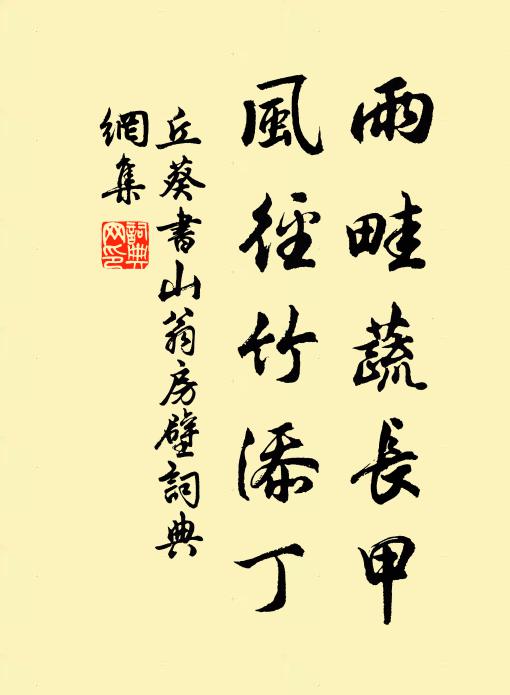 雨畦蔬長甲
風徑竹添丁
丘葵書山翁房壁詞典
網集
詞典
网印